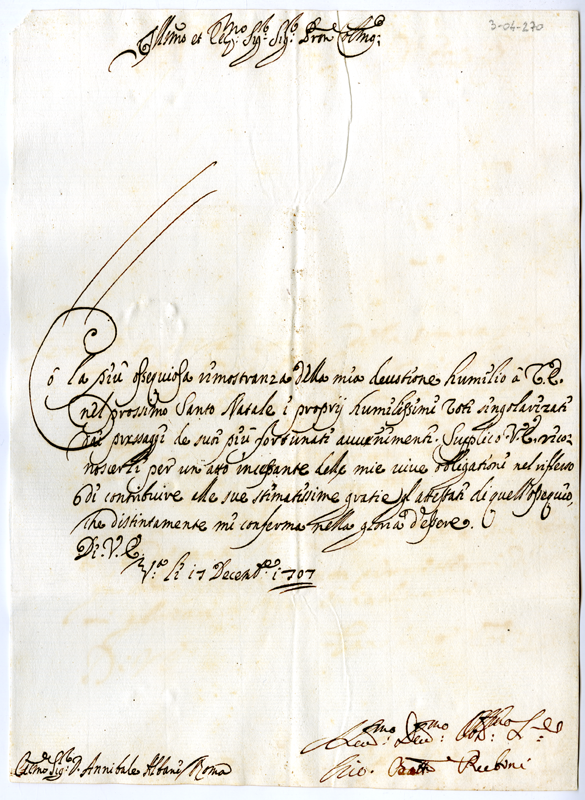 3-04-270
Ill.mo et R.mo Sig.r Sig.r Pron Col.mo
Cō la più ossequiosa rimostranza della mia devotione humilio à V.E.
nel prossimo Santo Natale i proprij humilissimi voti singolarizati
dai pressaggi de suoi più fortunati avvenimenti. Supplico V.E. rico-
noscerli per un atto incessante delle mie vive obligationi nel riflesso
di contribuire alle sue stimatissime gratie gl'attestati di quell'ossequio,
che distintamente mi conferma nella gloria d'essere.
Di V.E.
V.a li 17 Decemb.e 1707
Hum.mo Dev.mo Obl.mo S.re
Gio. Batta Ruboni
Sig.r D. Annibale Albani Roma